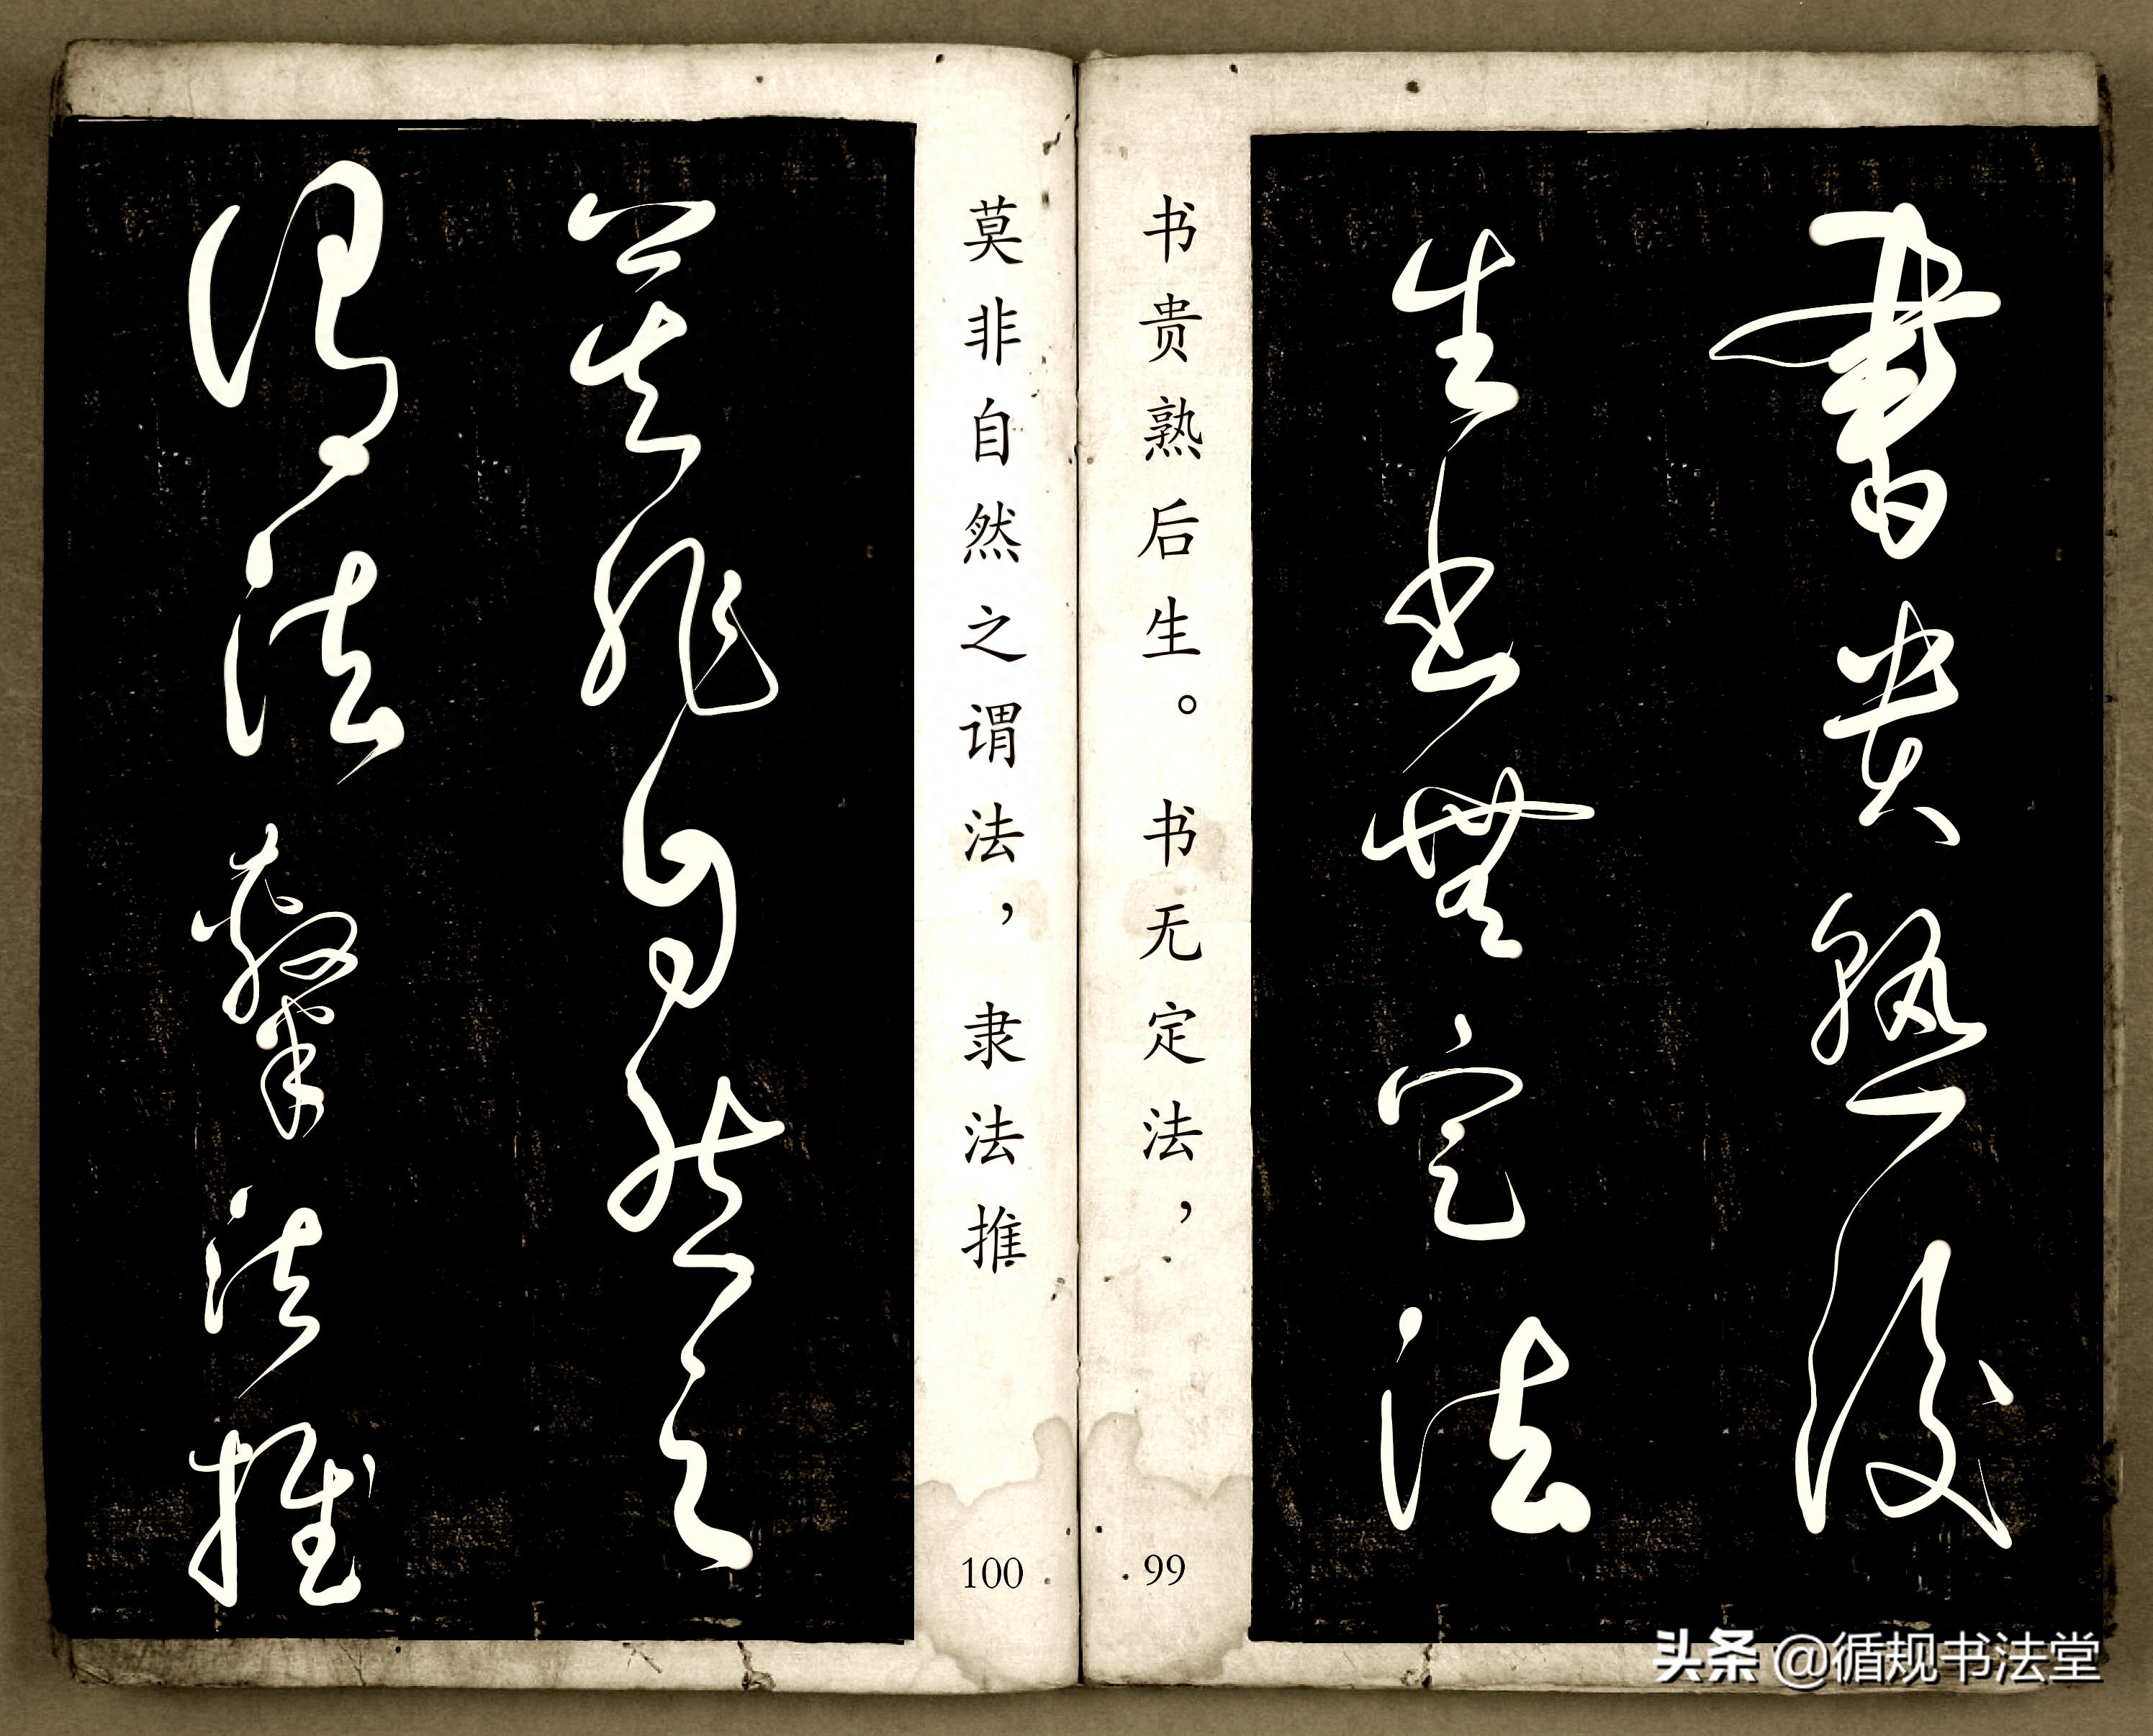 書貴熟後
生書無定法
书贵熟后生。书无定法，
99
莫非自然之
謂法隸法推
莫非自然之谓法，隶法推
100
头条 @循规书法堂